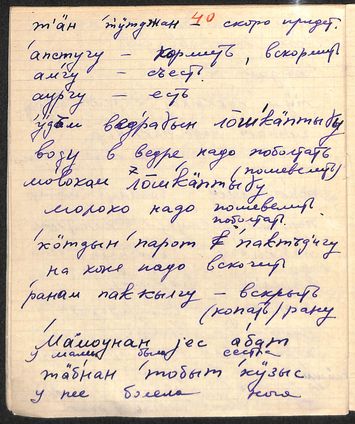 40
т'ӓн 'тӱтджан — скоро придет.
а́пстугу — кормить, вскормить
амгу — съесть
аургу — есть
ӱдъм ведрабын ло̄шкӓптыбу
воду в ведре надо поболтать
мо́локам ло̄шкӓптыбу (пошевелить)
молоко надо пошевелить
поболтать.
'кӧтдын 'парот 'пактъдигу
на коне надо вскочить
'ранам паккылгу — вскрыть
(копать) рану
Ма́моунан jес а́бат
у мамы была сестра
тӓбнан 'тобыт 'кӱзыс
у нее болела нога